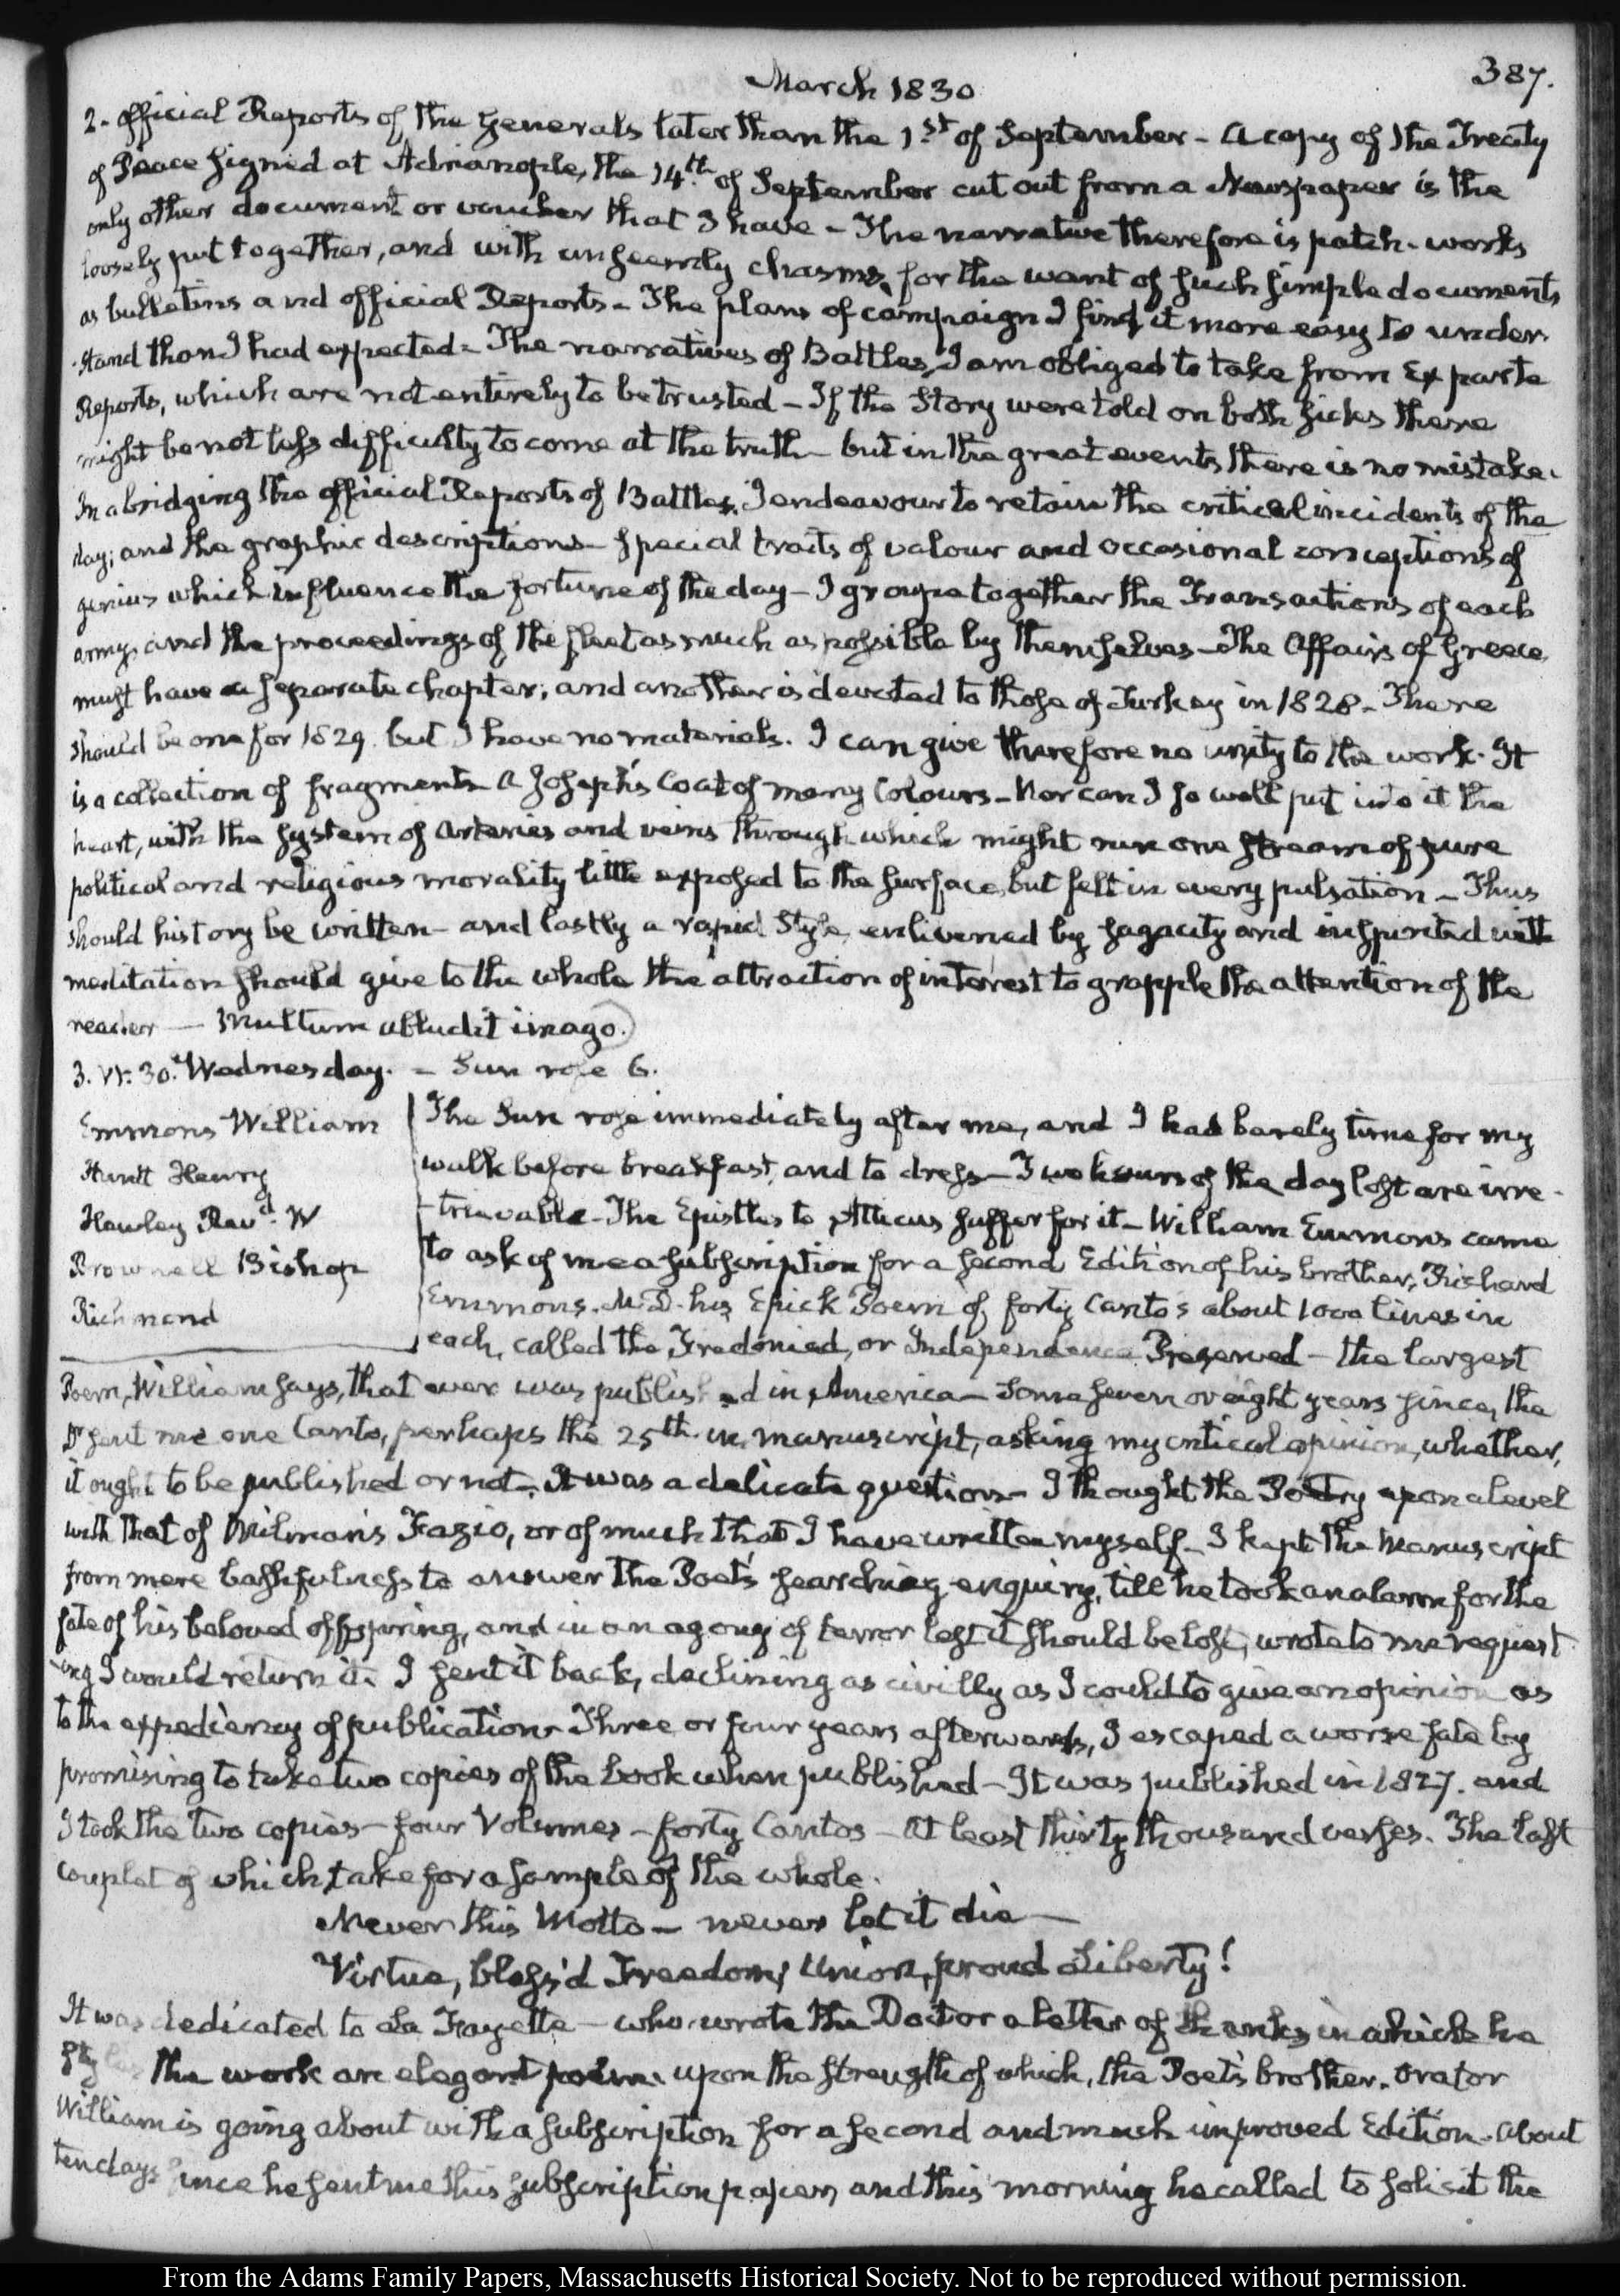 March 1830
387.
2. Official Reports of the Generals later than the 1st of September - A copy of the Treaty
of Peace signed at Adrianople, the 14th of September cut out from a Newspaper is the
only other document or voucher that I have - The narrative therefore is patch-work
loosely put together, and with unseemly chasms, for the want of such simple documents
as bulletins and official Reports - The plans of campaign I find it more easy to under-
-stand than I had expected - The narratives of Battles, I am obliged to take from Ex parte
Reports, which are not entirely to be trusted - If the Story were told on both sides there
might be not less difficulty to come at the truth - but in the great events there is no mistake.
In abridging the official Reports of Battles, I endeavour to retain the critical incidents of the
day; and the graphic descriptions - special traits of valour and occasional conceptions of
genius which influence the fortune of the day - I groupe together the Transactions of each
army, and the proceedings of the fleet as much as possible by themselves - The Affairs of Greece
must have a separate chapter; and another is devoted to those of Turkey in 1828 - There
should be one for 1829 but I have no materials. I can give therefore no unity to the work. It
is a collection of fragments - A Joseph's Coat of many Colours - Nor can I so well put into it the
heart, with the system of Arteries and veins through which might run one stream of pure
political and religious morality little exposed to the surface, but felt in every pulsation - Thus
should history be written - and lastly a rapid Style, enlivened by sagacity and inspirited with
meditation should give to the whole the attraction of interest to grapple the attention of the
reader — Multum abludit imago.
3. VI: 30. Wednesday. - Sun rose 6.
Emmons William
Huntt Henry
Hawley Revd. W
Brownell Bishop
Richmond
The Sun rose immediately after me, and I had barely time for my
walk before breakfast, and to dress - Two hours of the day lost are irre-
-trievable - The Epistles to Atticus suffer for it - William Emmons came
to ask of me a subscription for a second Edition of his brother, Richard
Emmons. M.D. his Epick Poem of forty Cantos about 1000 lines in
each, called the Fredoniad, or Independence Preserved - the largest
Poem, William says, that ever was published in America - Some seven or eight years since, the
Dr sent me one Canto, perhaps the 25th in manuscript, asking my critical opinion, whether,
it ought to be published or not - It was a delicate question - I thought the Poetry upon a level
with that of Milman's Fazio, or of much that I have written myself - I kept the Manuscript
from mere bashfulness to answer the Poet's searching enquiry, till he took an alarm for the
fate of his beloved offspring, and in an agony of terror lest it should be lost, wrote to me request-
-ing I would return it. I sent it back, declining as civilly as I could to give an opinion as
to the expediency of publication - Three or four years afterwards, I escaped a worse fate by
promising to take two copies of the book when published - It was published in 1827. and
I took the two copies - four Volumes - forty Cantos - At least thirty thousand verses. The last
couplet of which, take for a sample of the whole.
Never this Motto - never let it die -
Virtue, bless'd Freedom, Union, proud Liberty!
It was dedicated to La Fayette - who wrote the Doctor a letter of thanks in which he
styles the work an elegant poem. upon the strength of which, the Poet's brother, orator
William is going about with a subscription for a second and much improved Edition - About
ten days since he sent me this subscription paper, and this morning he called to solicit the
From the Adams Family Papers, Massachusetts Historical Society. Not to be reproduced without permission.